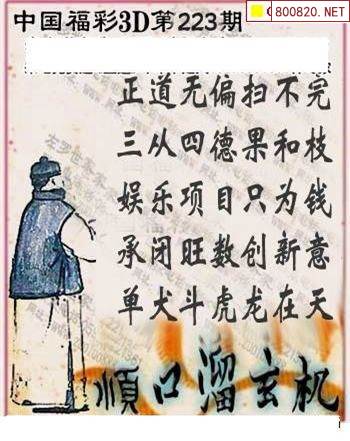 800820.NET
中国福彩3D第223期
正道无偏扫不完
三从四德果和枝
娱乐项目只为钱
承闭旺数创新意
单犬斗虎龙在天
顺口溜玄机